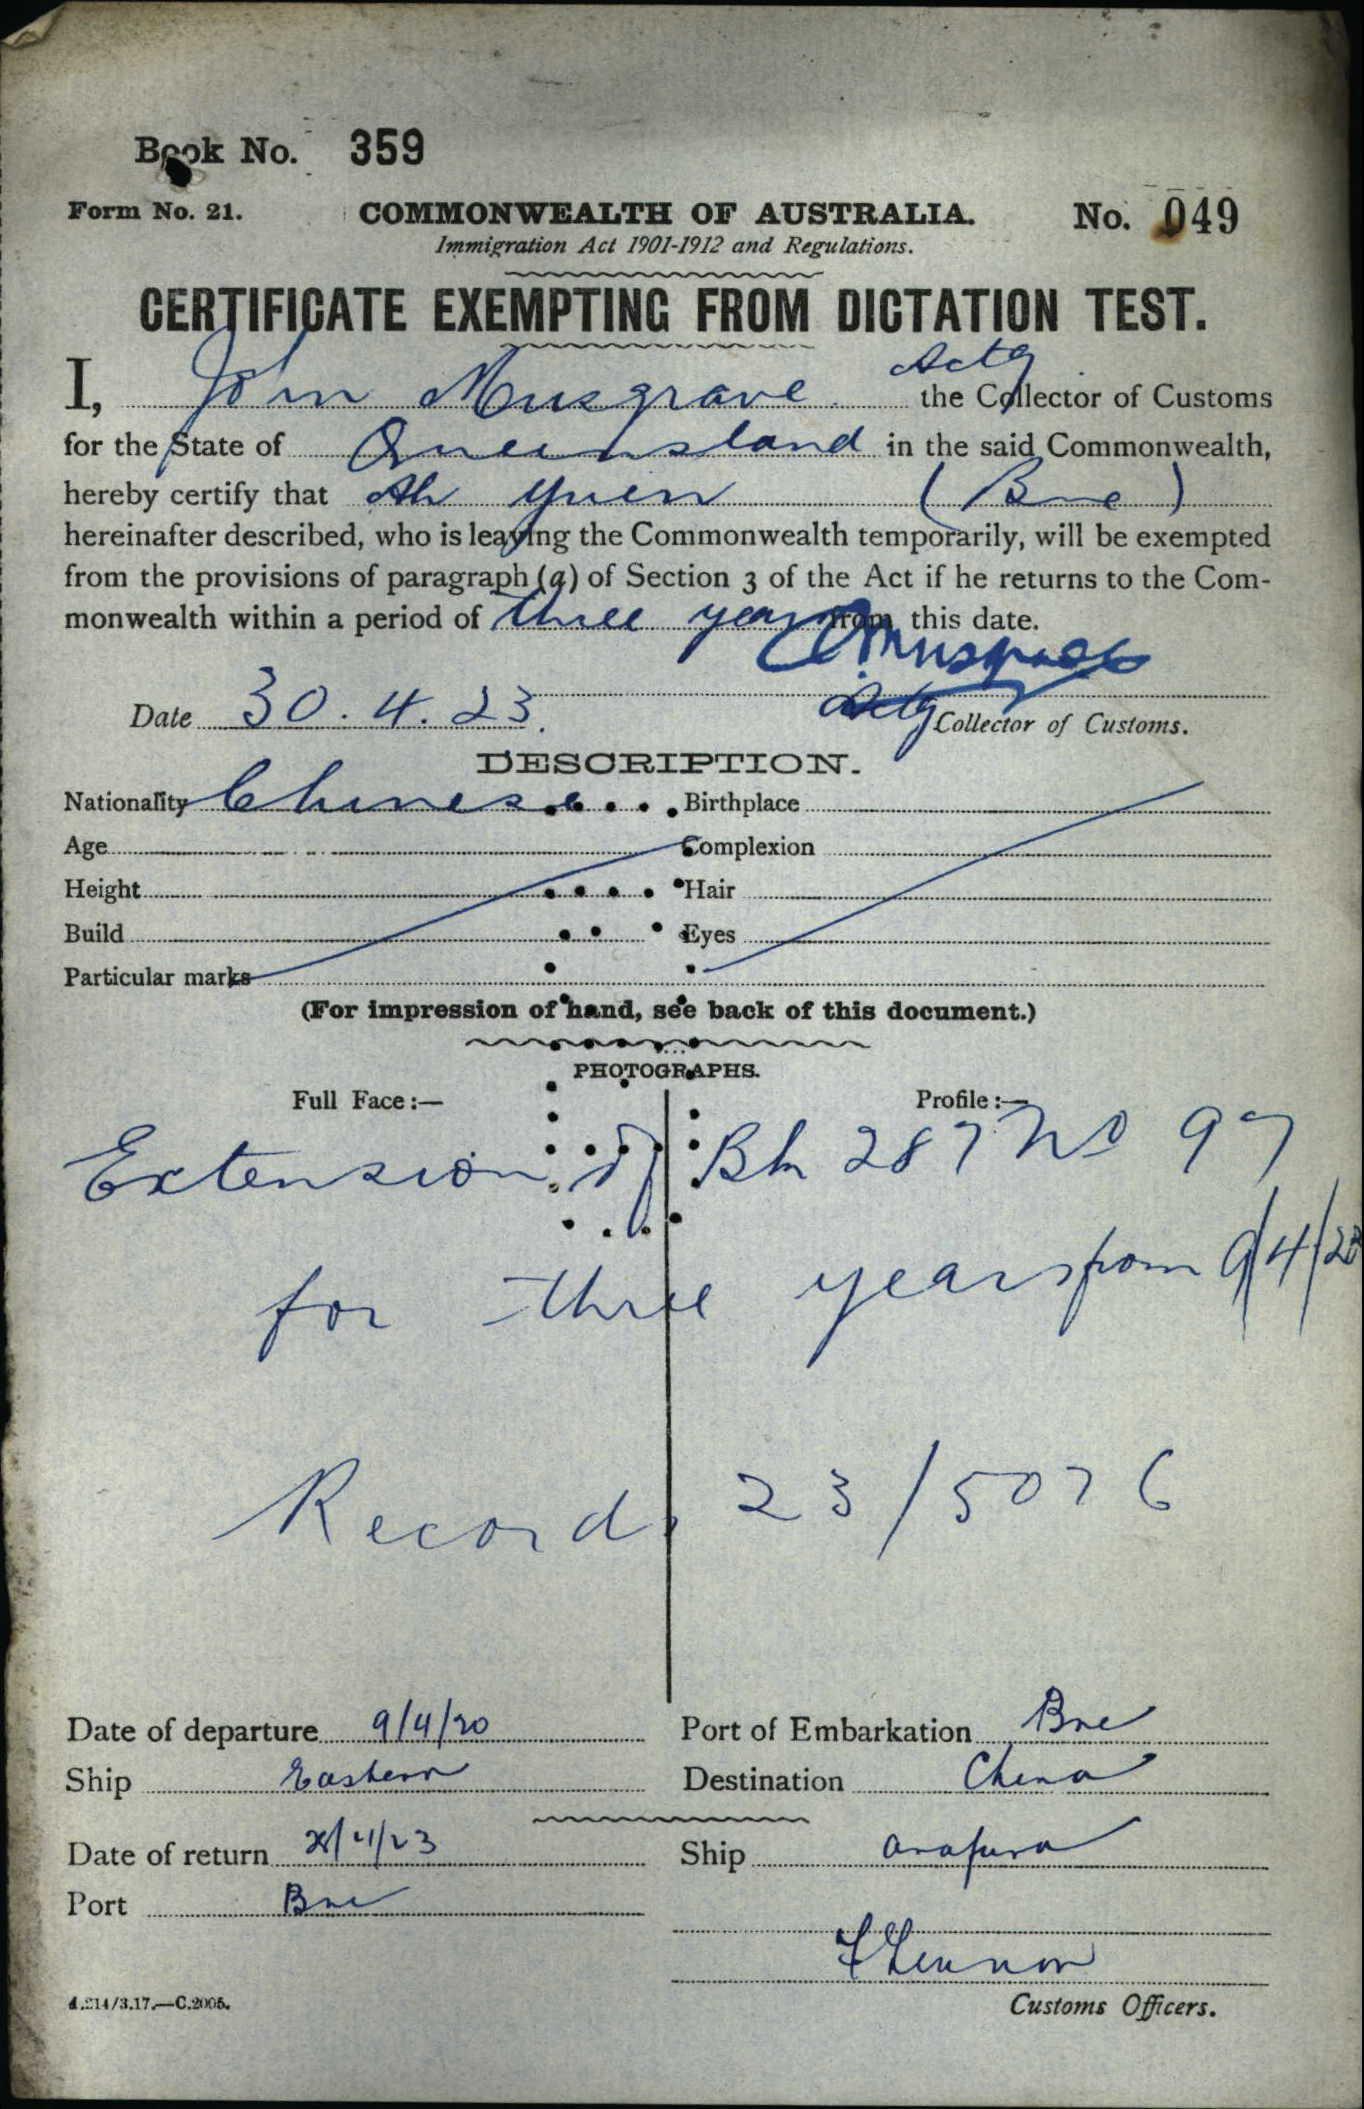 Book No. 359
Form No. 21. COMMONWEALTH OF AUSTRALIA. No. 049
Immigration Act 1901-1912 and Regulations.
CERTIFICATE EXEMPTING FROM DICTATION TEST.
Actg
I, John Musgrave the Collector of Customs
for the State of Queensland in the said Commonwealth,
hereby certify that Ah Yuen (Bne)
hereinafter described, who is leaving the Commonwealth temporarily, will be exempted
from the provisions of paragraph (a) of Section 3 of the Act if he returns to the Com-
monwealth within a period of three years from this date.
Musgrave
Date 30.4.23. Actg Collector of Customs.
DESCRIPTION.
Nationality Chinese Birthplace
Age Complexion
Height Hair
Build Eyes
Particular marks
(For impression of hand, see back of this document.)
PHOTOGRAPHS.
Full Face:— Profile:—
Extension of Bk 287 No 97
for three years from 9/4/23
Record, 23/5076
Date of departure 9/4/20 Port of Embarkation Bne
Ship Eastern Destination China
Date of return /4/23 Ship Arafura
Port Bne
F Lennon
A.214/3.17.—C.2005. Customs Officers.